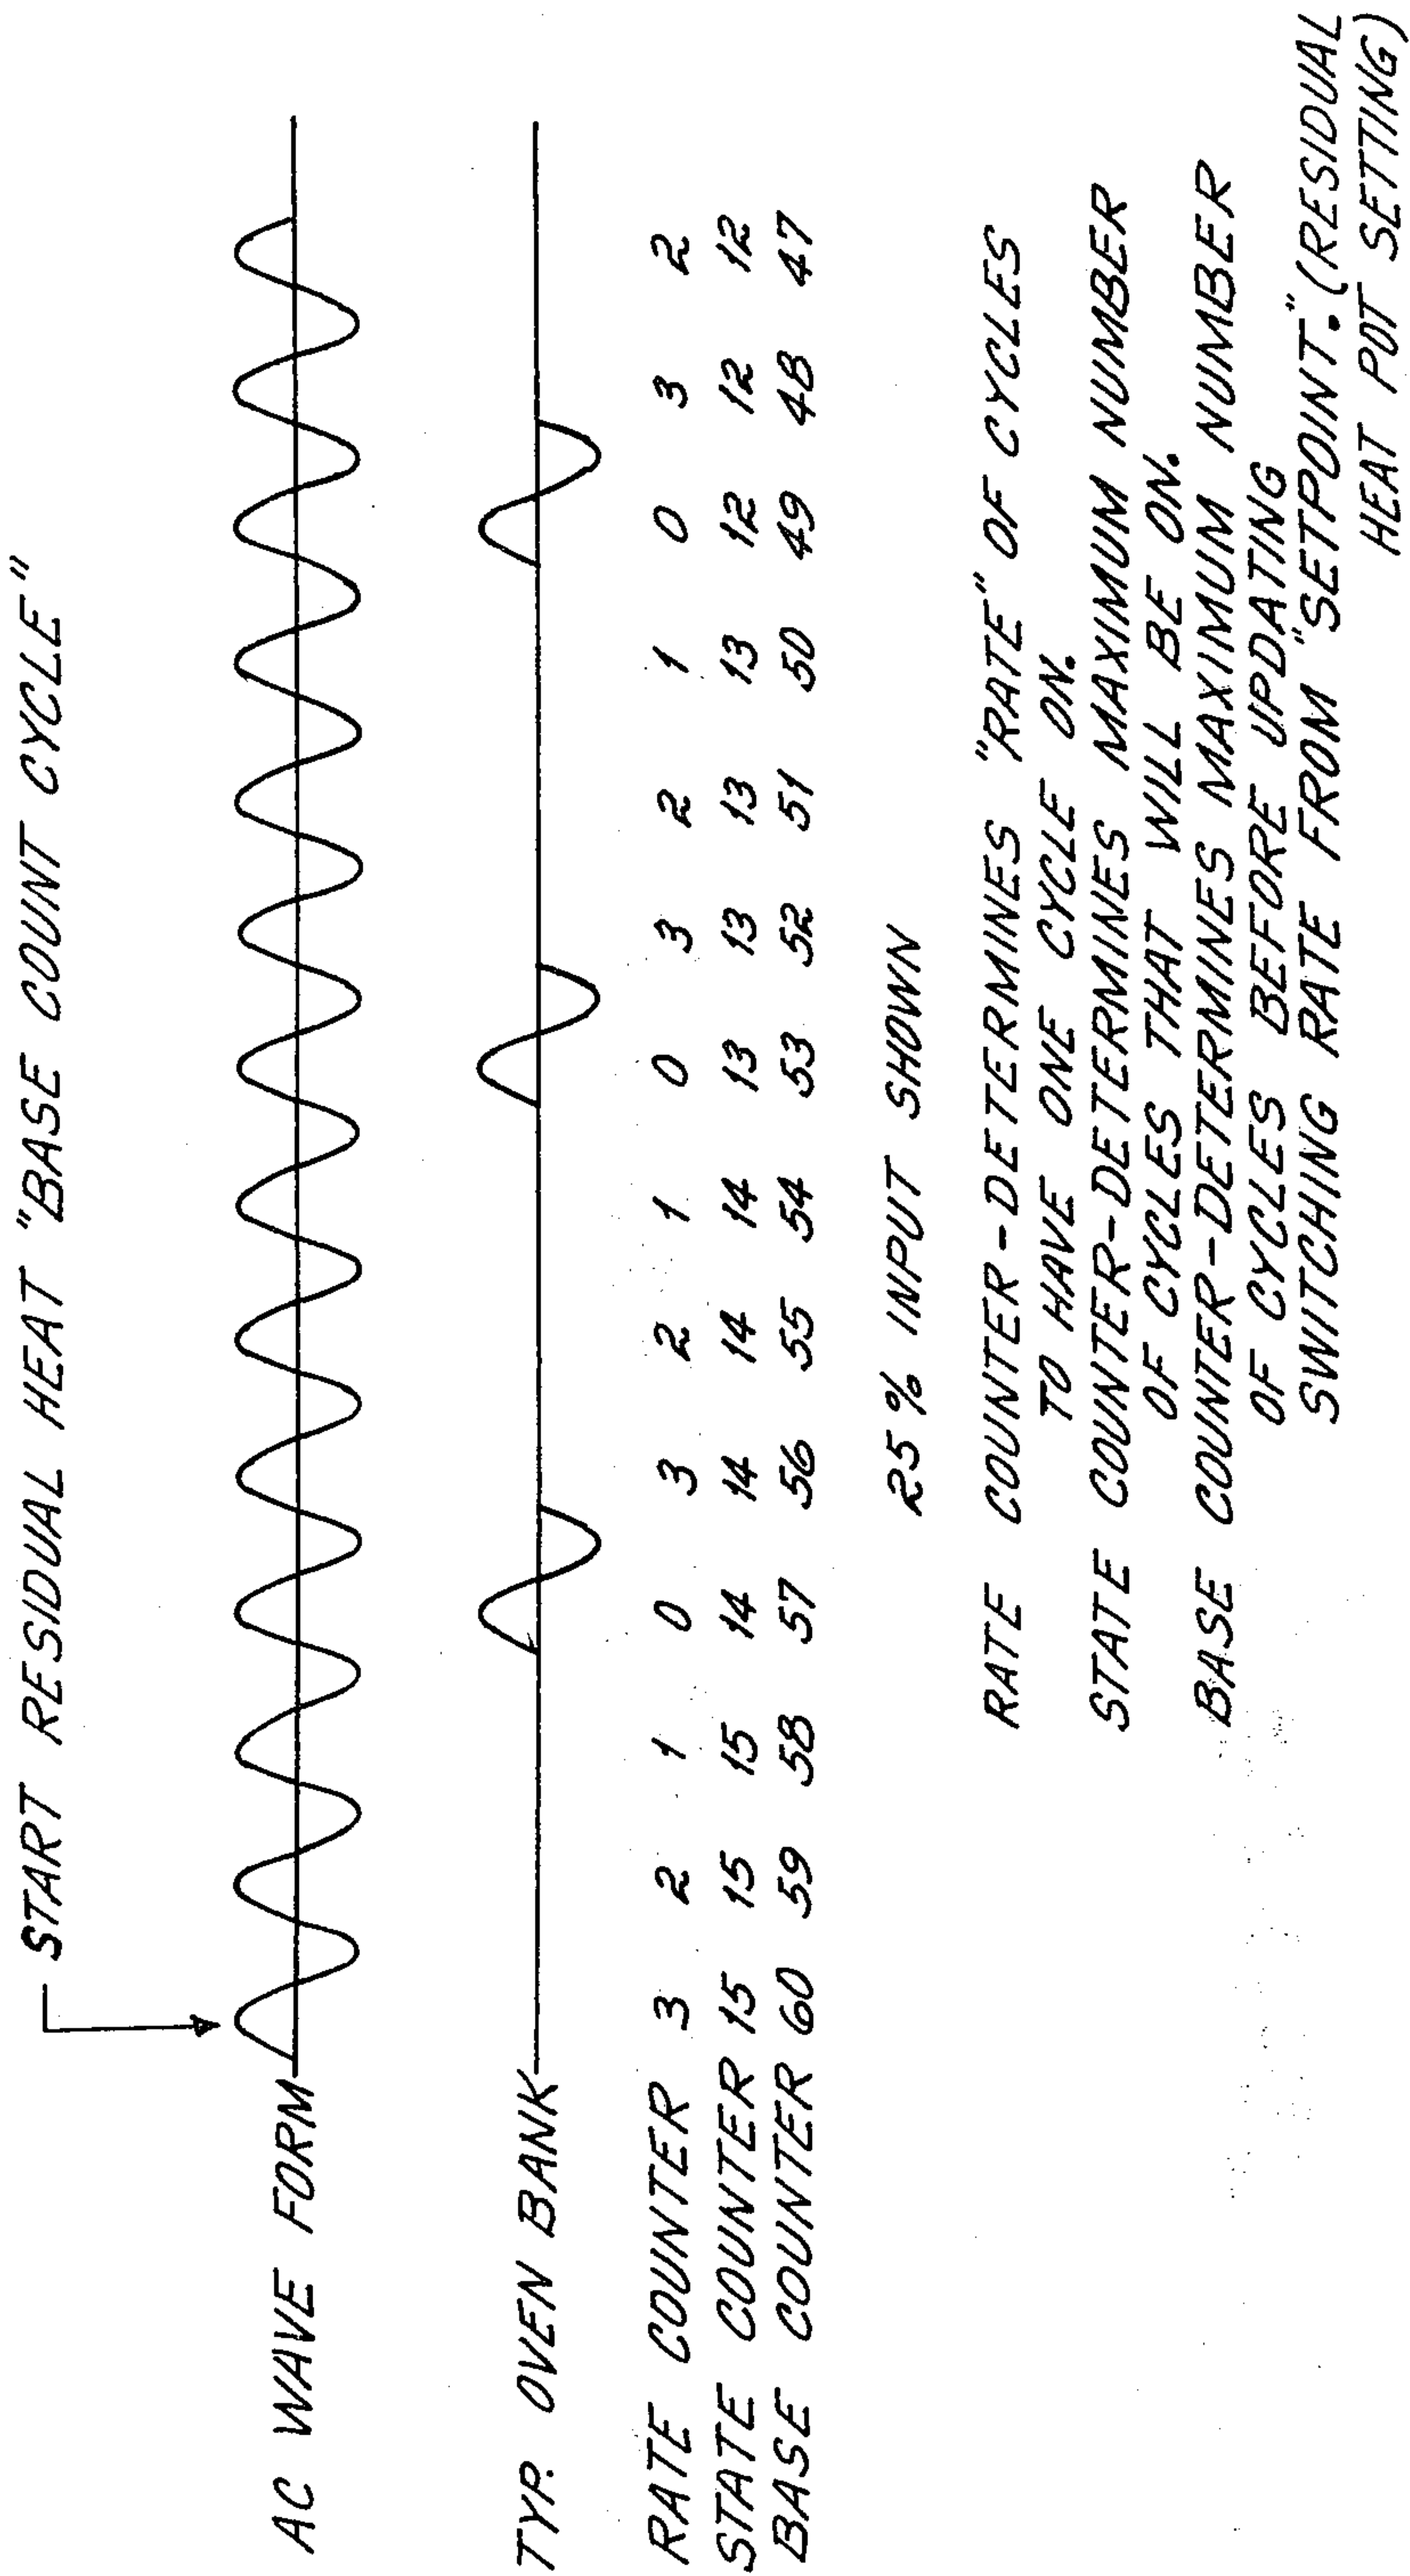 START RESIDUAL HEAT "BASE COUNT CYCLE"
AC WAVE FORM
TYP. OVEN BANK
RATE COUNTER 3 2 1 0 3 2 1 0 3 2 1 0 3 2
STATE COUNTER 15 15 15 14 14 14 14 13 13 13 13 12 12 12
BASE COUNTER 60 59 58 57 56 55 54 53 52 51 50 49 48 47
25% INPUT SHOWN
RATE COUNTER-DETERMINES "RATE" OF CYCLES
TO HAVE ONE CYCLE ON.
STATE COUNTER-DETERMINES MAXIMUM NUMBER
OF CYCLES THAT WILL BE ON.
BASE COUNTER-DETERMINES MAXIMUM NUMBER
OF CYCLES BEFORE UPDATING
SWITCHING RATE FROM "SETPOINT." (RESIDUAL
HEAT POT SETTING)